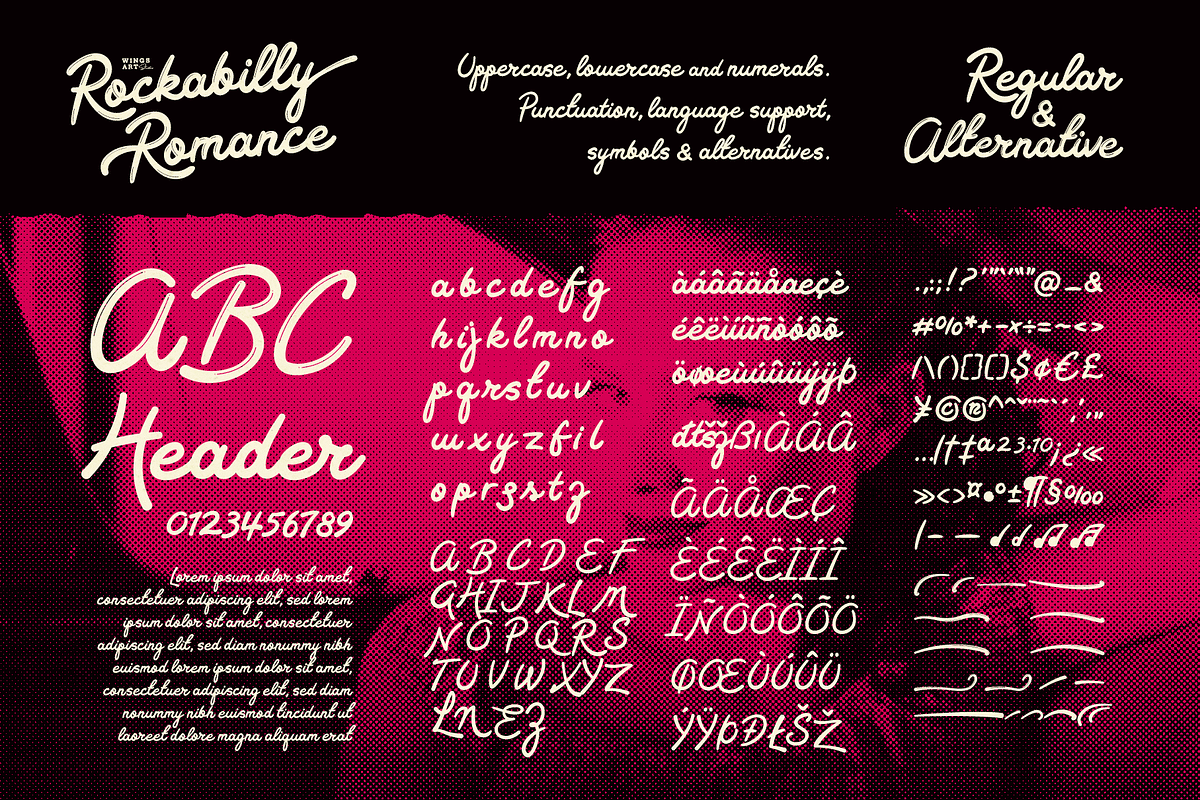 Rockabilly
WINGS
ART
Romance
Uppercase, lowercase and numerals.
Punctuation, language support,
symbols & alternatives.
Regular
&
Alternative
ABC
Header
0123456789
Lorem ipsum dolor sit amet,
consectetuer adipiscing elit, sed lorem
ipsum dolor sit amet, consectetuer
adipiscing elit, sed diam nonummy nibh
euismod lorem ipsum dolor sit amet,
consectetuer adipiscing elit, sed diam
nonummy nibh euismod tincidunt ut
laoreet dolore magna aliquam erat
a b c d e f g
h i j k l m n o
p q r s t u v
w x y z f i l
o p r s s t z
A B C D E F
G H I J K L M
N O P Q R S
T U V W X Y Z
L n E z
àáâãäåæçè
éêëìíîñòóôõ
öøœùúûüýÿþ
đŧšžßıÀÁÂ
ÃÄÅÆÇ
ÈÉÊËÌÍÎ
ÏÑÒÓÔÕÖ
ØŒÙÚÛÜ
ÝŸÞĐŁŠŽ
.,:;!?'"'""@_&
#%*+-×÷=~<>
/\()[]{}$¢€£
¥©®
...|†‡ª23·1º¡¿«
»‹›¤•°±¶§‰